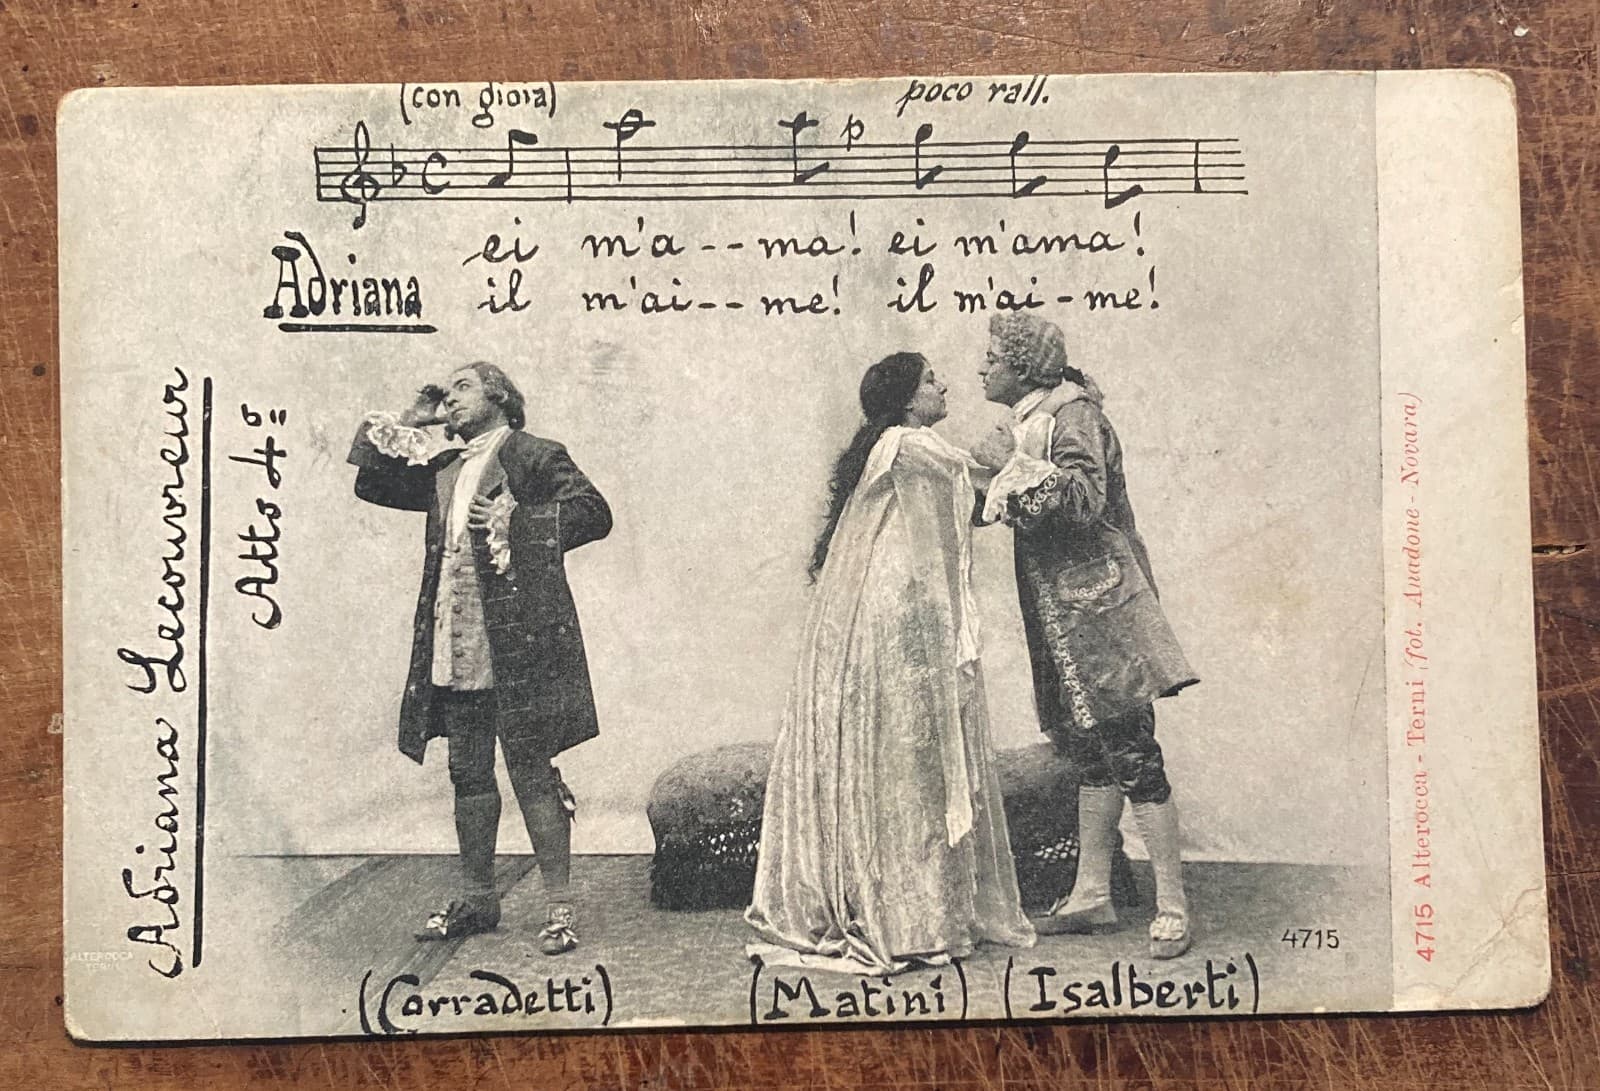 (con gioia) poco rall.
C p
ei m'a--ma! ei m'ama!
Adriana il m'ai--me! il m'ai-me!
Adriana Lecouvreur
Atto 4º
(Corradetti) (Matini) (Isalberti)
4715
ALTEROCCA
TERNI
4715 Alterocca - Terni (fot. Anadone - Novara)